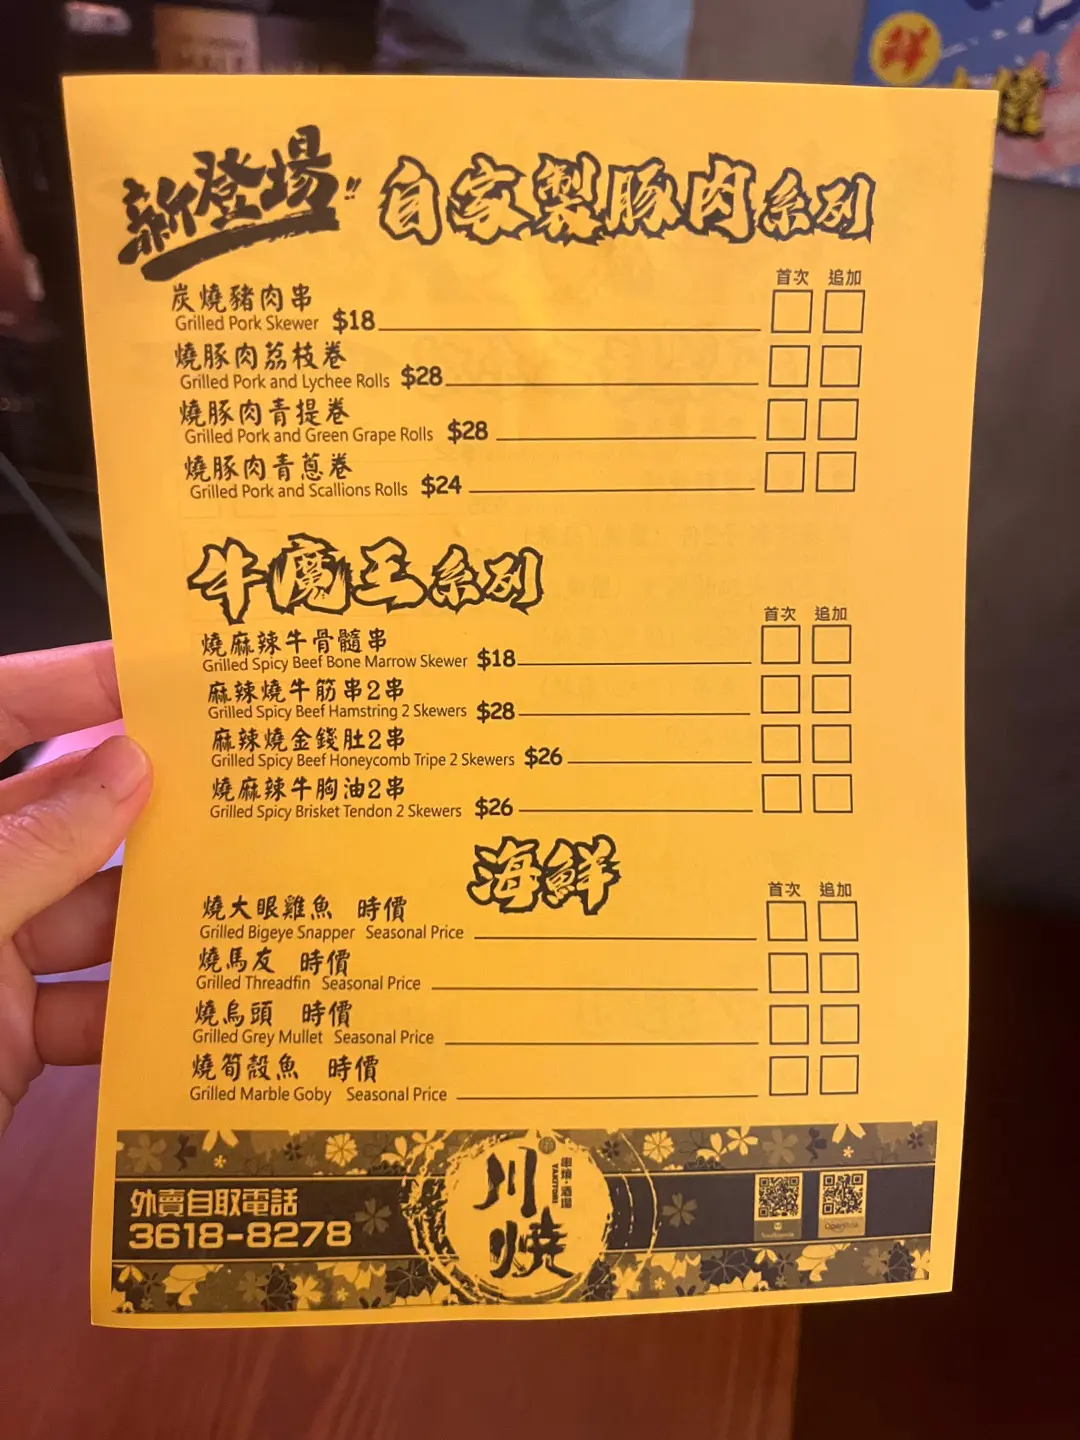 鮮
新登場!! 自家製豚肉系列
首次 追加
炭燒豬肉串
Grilled Pork Skewer $18
燒豚肉荔枝卷
Grilled Pork and Lychee Rolls $28
燒豚肉青提卷
Grilled Pork and Green Grape Rolls $28
燒豚肉青蔥卷
Grilled Pork and Scallions Rolls $24
牛魔王系列
首次 追加
燒麻辣牛骨髓串
Grilled Spicy Beef Bone Marrow Skewer $18
麻辣燒牛筋串2串
Grilled Spicy Beef Hamstring 2 Skewers $28
麻辣燒金錢肚2串
Grilled Spicy Beef Honeycomb Tripe 2 Skewers $26
燒麻辣牛胸油2串
Grilled Spicy Brisket Tendon 2 Skewers $26
海鮮
首次 追加
燒大眼雞魚 時價
Grilled Bigeye Snapper Seasonal Price
燒馬友 時價
Grilled Threadfin Seasonal Price
燒烏頭 時價
Grilled Grey Mullet Seasonal Price
燒筍殼魚 時價
Grilled Marble Goby Seasonal Price
外賣自取電話
3618-8278
川燒
串燒·酒場
YAKITORI